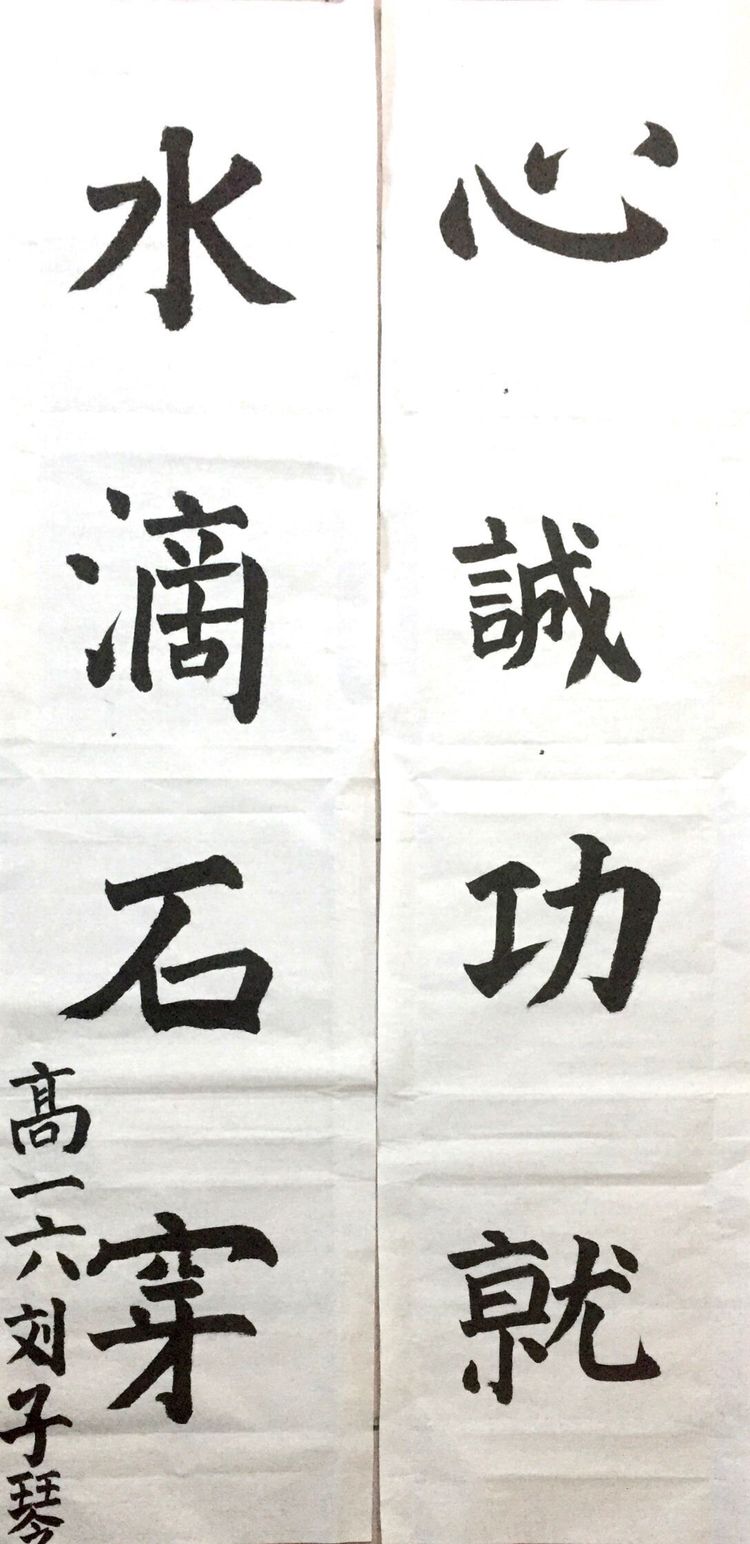 心誠功就
水滴石穿
高一六刘子琴